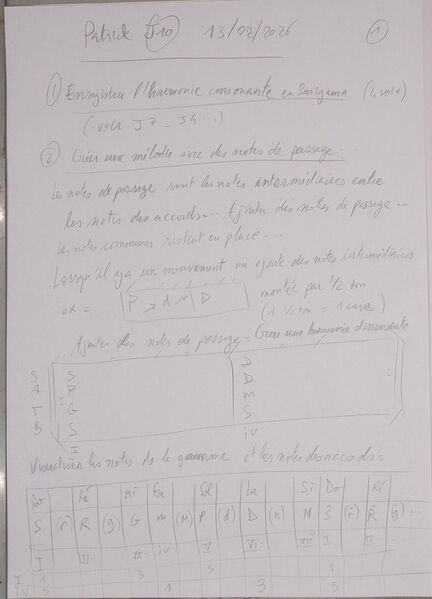 Patrick J10 13/02/2026 1
① Enregistrer l'harmonie consonante en Sargama (4 voix)
(voir J7 - J4 ...)
② Créer une mélodie avec des notes de passage...
Les notes de passage sont les notes intermédiaires entre
les notes des accords... Ajouter des notes de passage...
Les notes communes restent en place ...
Lorsqu'il y a un mouvement on ajoute des notes intermédiaires
ex = P → d → D montée par 1/2 ton
(1 1/2 ton = 1 case)
Ajouter des notes de passage = Créer une harmonie dissonante
S S D
A P D
T G m
B S S
I iv
Visualiser les notes de la gamme et les notes des accords =
Do Ré Mi Fa Sol La Si Do Ré
S (r) R (g) G m (M) P (d) D (n) N S (r) R (g)
I II III iv V VI VII I II
I 1 3 5 1
IV 5 1 3 5